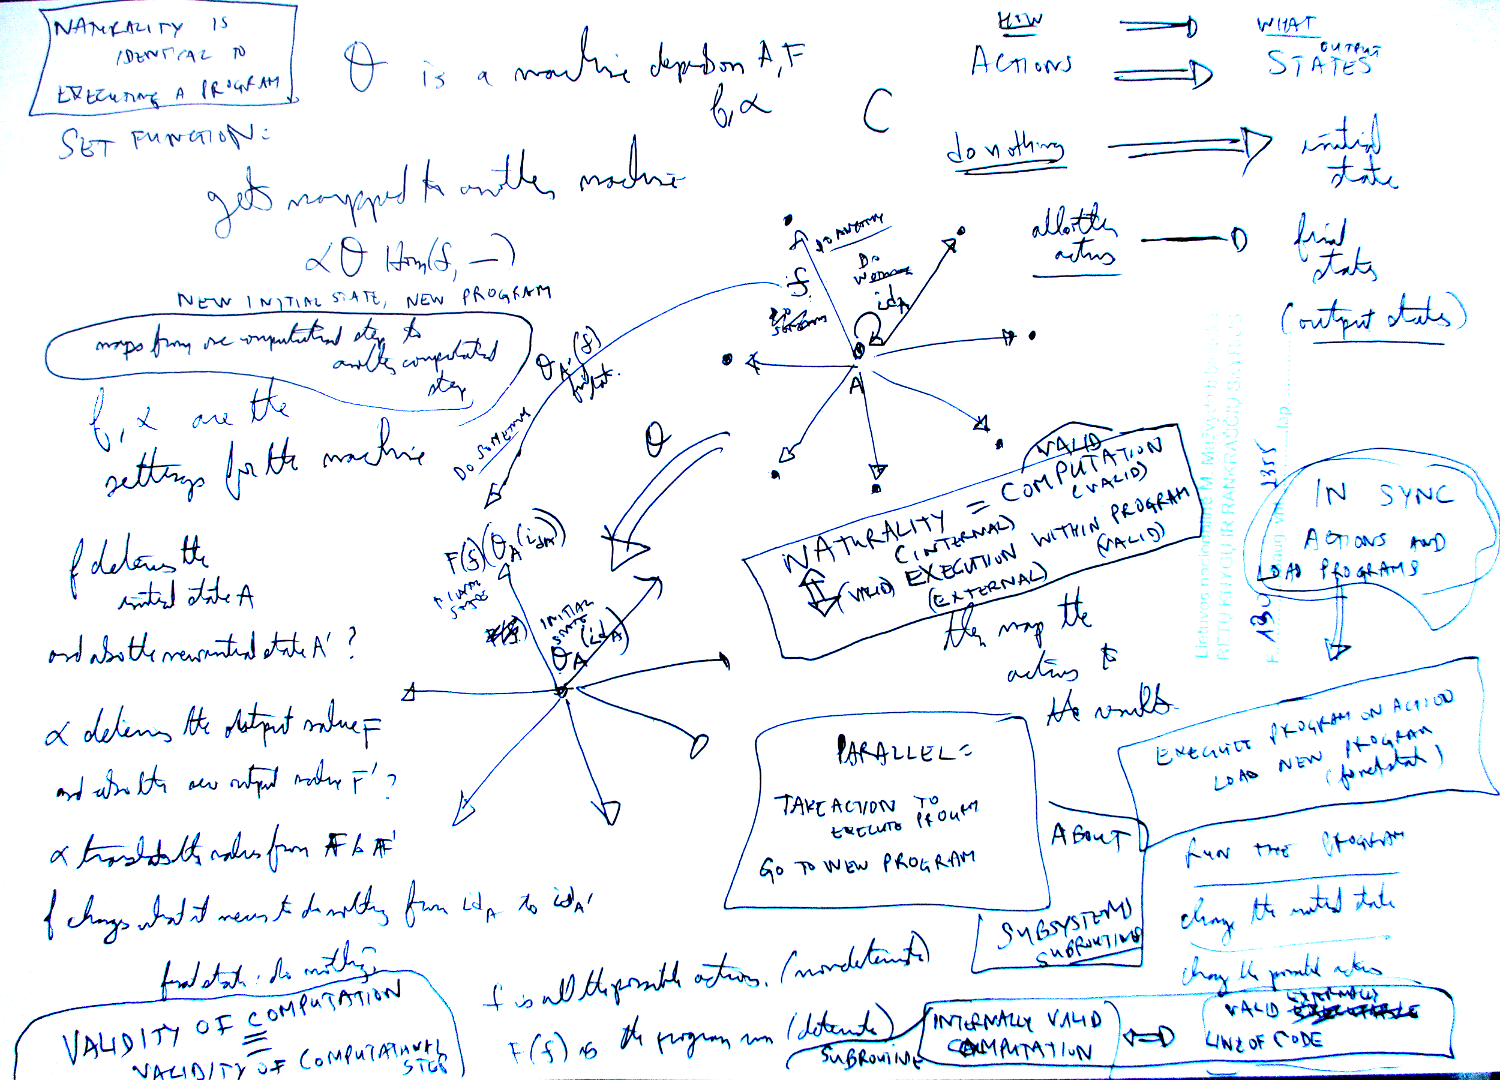 NATURALITY IS
IDENTICAL TO
EXECUTING A PROGRAM
SET FUNCTION:
θ is a machine depends on A, F
f, α
C
gets mapped to another machine
α θ Hom(f, —)
NEW INITIAL STATE, NEW PROGRAM
maps from one computational step to
another computational
step
f, α are the
settings for the machine
f determines the
initial state A
and also the new initial state A' ?
α determines the output value F
and also the new output value F' ?
α translates the values from F to F'
f changes what it means to do nothing from id_A to id_A'
final state: do nothing
VALIDITY OF COMPUTATION
=
VALIDITY OF COMPUTATIONAL
STEP
HOW
WHAT
ACTIONS
OUTPUT
STATES
do nothing
initial
state
all other
actions
final
states
(output states)
DO ANYTHING
f
DO
id_A
A
θ_A'(f)
DO SOMETHING
θ
F(f)(θ_A(id_A))
INITIAL
STATE
θ_A(id_A)
VALID
NATURALITY = COMPUTATION
(INTERNAL) (VALID)
(VALID) EXECUTION WITHIN PROGRAM
(EXTERNAL) (VALID)
then map the
actions to
the results.
IN SYNC
ACTIONS AND
LOAD PROGRAMS
EXECUTE PROGRAM ON ACTION
LOAD NEW PROGRAM
PARALLEL =
TAKE ACTION TO
EXECUTE PROGRAM
GO TO NEW PROGRAM
ABOUT
SUBSYSTEMS
SUBROUTINES
RUN THE PROGRAM
change the initial state
change the possible actions
f is all the possible actions. (nondeterminate)
F(f) is the program run (determinate)
SUBROUTINE
INTERNALLY VALID
COMPUTATION
EXTERNALLY
VALID
LINE OF CODE